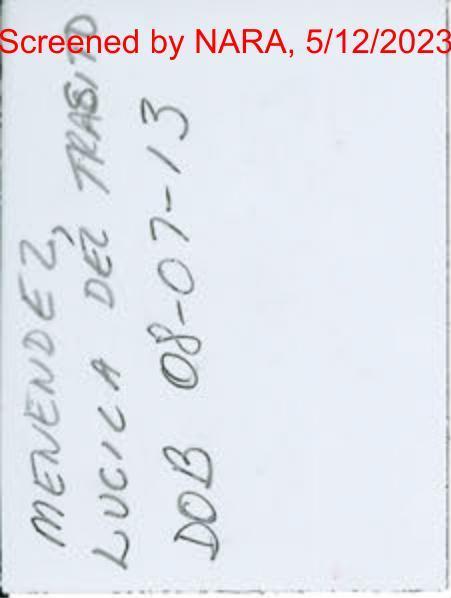 Screened by NARA, 5/12/2023
MENENDEZ,
LUCILA DEL TRASITO
DOB 08-07-13